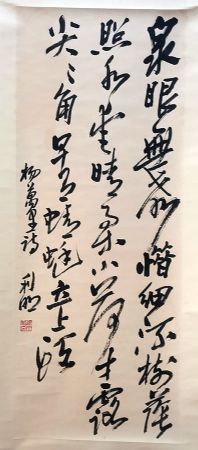 泉眼無聲惜細流樹蔭
照水愛晴柔小荷才露
尖々角早有蜻蜓立上頭
楊萬里詩 利明